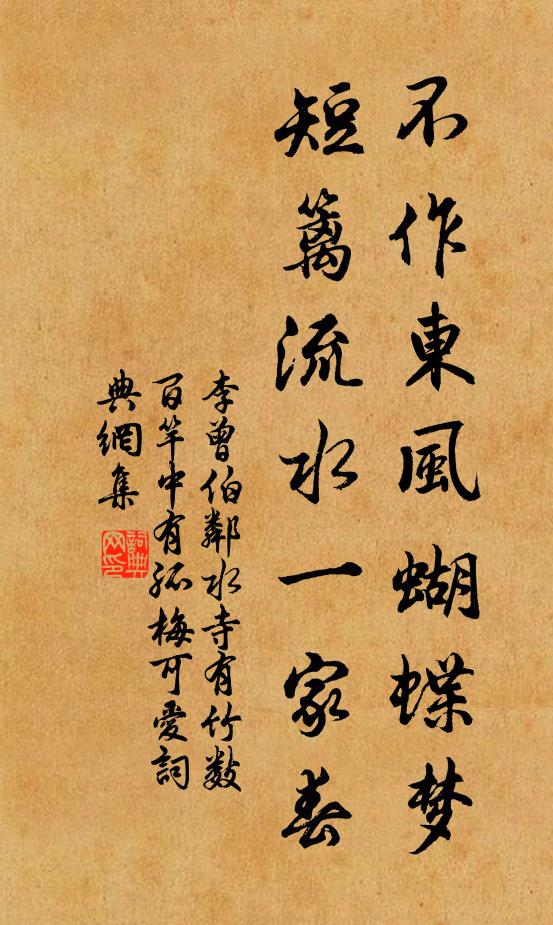 不作東風蝴蝶梦
短篱流水一家春
李曾伯鄰水寺有竹数
百竿中有孤梅可愛詞
典網集
詞典
网印